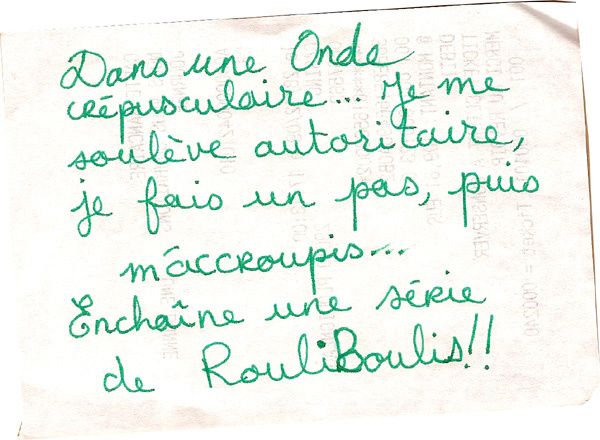 Dans une Onde
crépusculaire... Je me
soulève autoritaire,
je fais un pas, puis
m'accroupis...
Enchaîne une série
de RouliBoulis!!